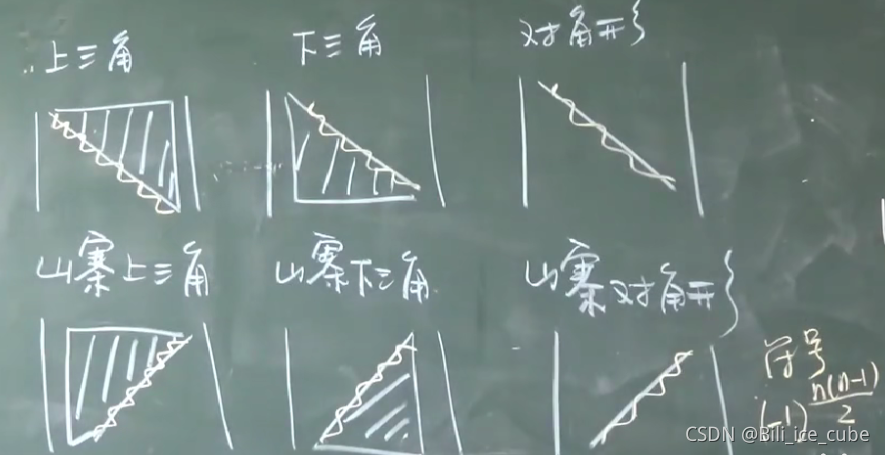 上三角
下三角
对角形
山寨上三角
山寨下三角
山寨对角形
符号
(-1)^{\frac{n(n-1)}{2}}
CSDN @Bili_ice_cube